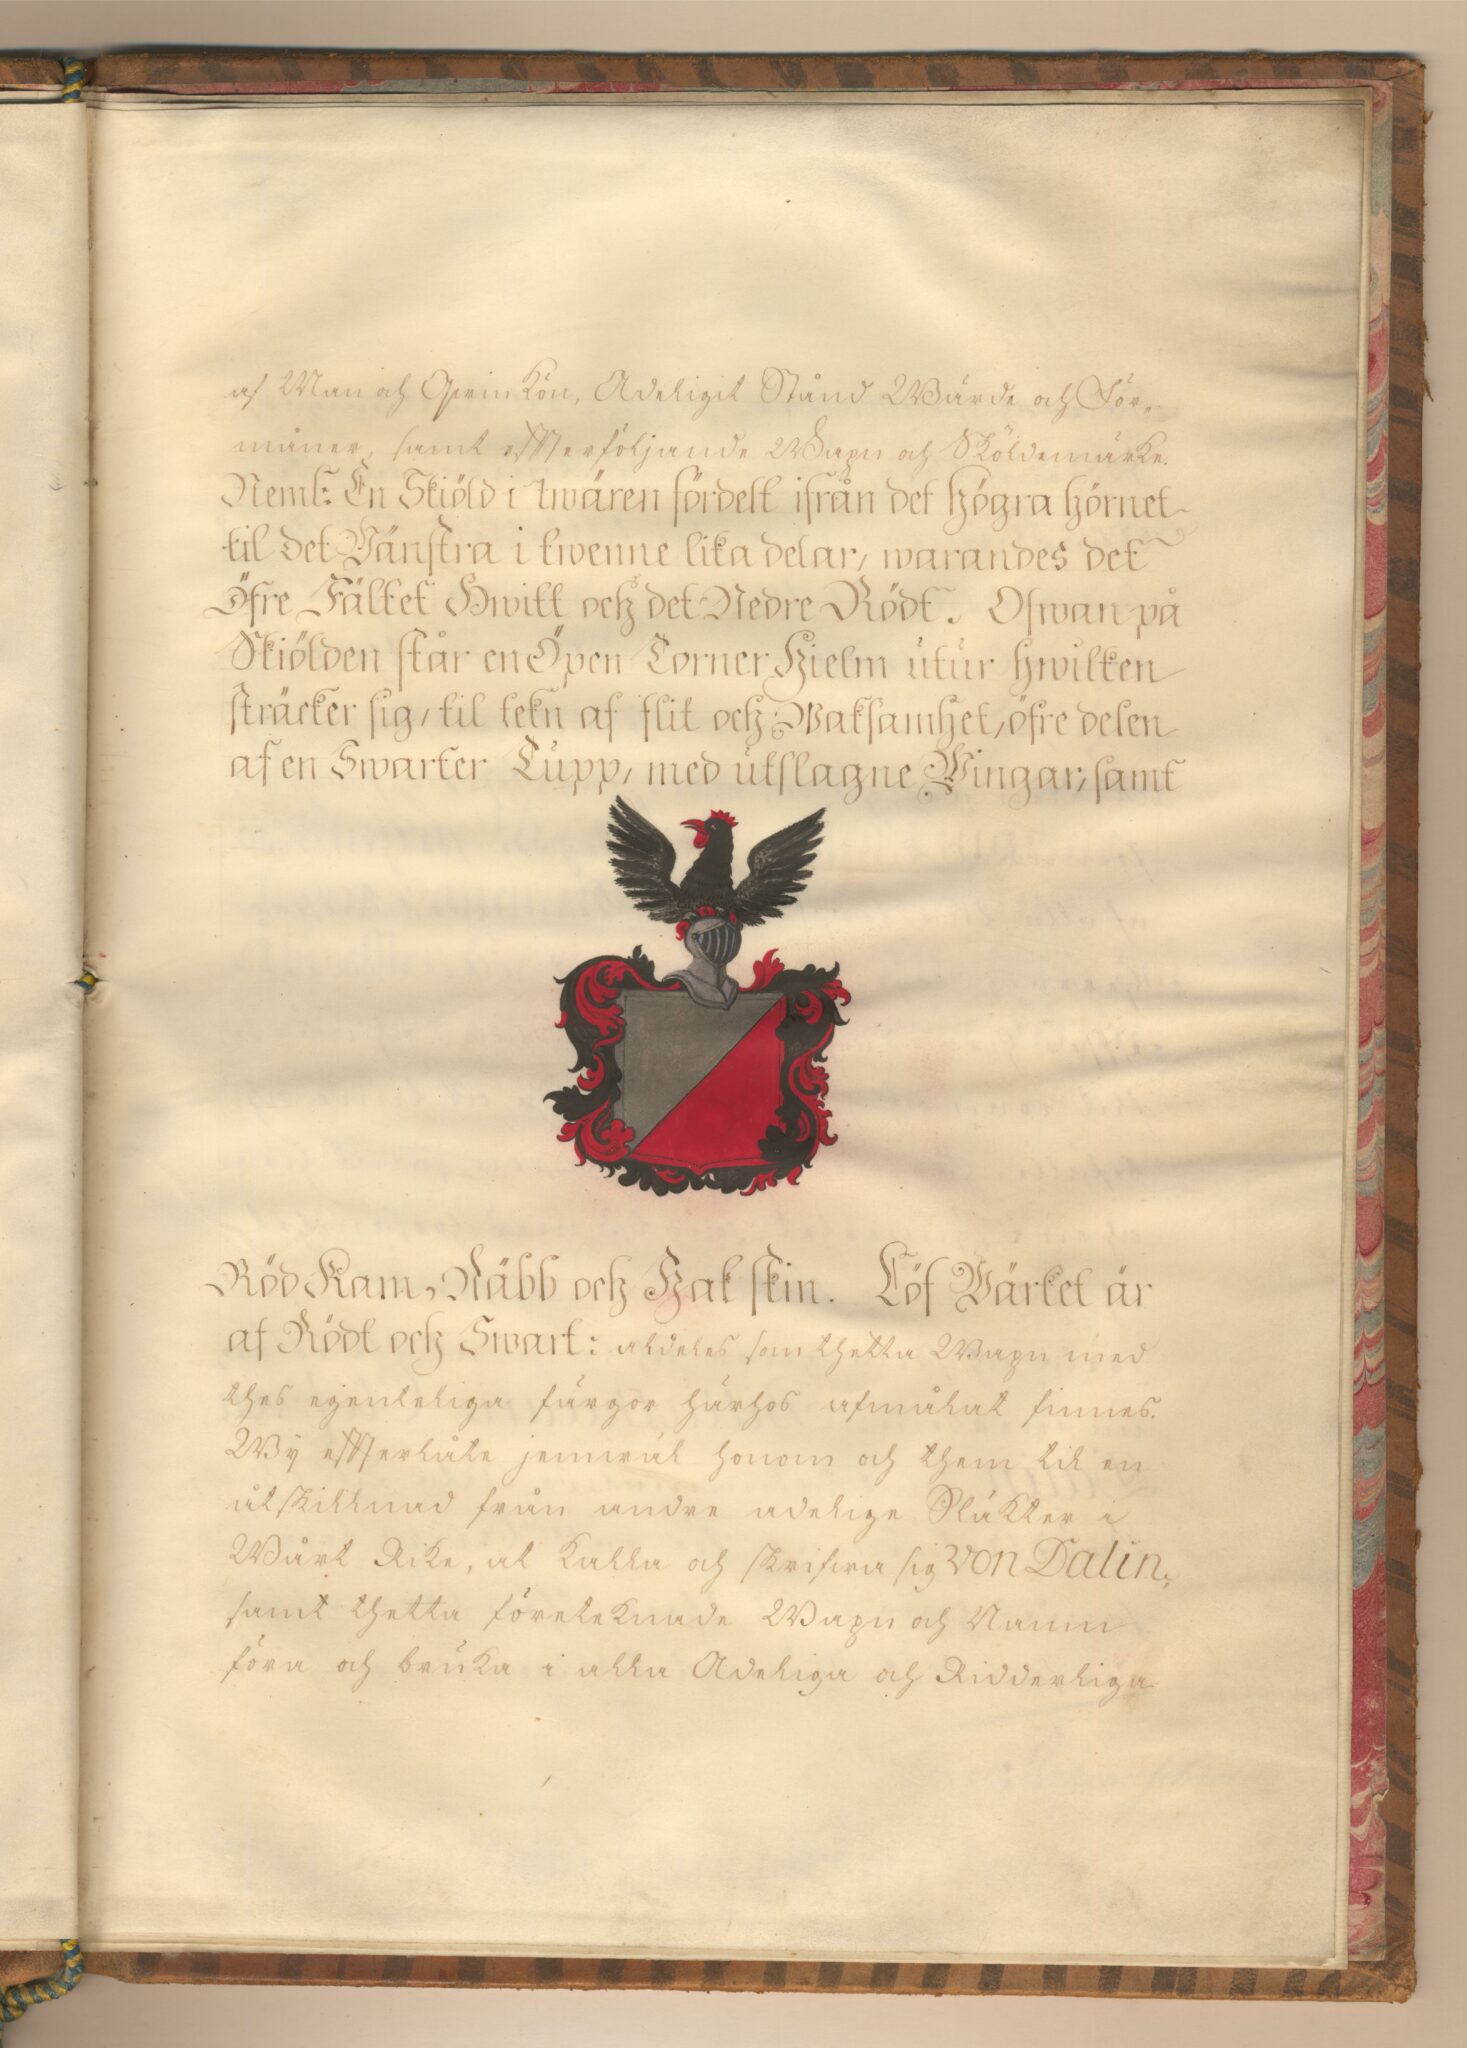 af Man och Qvin Kön, Adeligit Stånd Wärde och För„
måner, samt efterföljande Wapn och Sköldemärke.
Neml: En Skiöld i twären fördelt ifrån det högra hörnet
til det Vänstra i twenne lika delar, warandes det
Öfre Fältet Hwitt och det Nedre Rödt. Ofwan på
Skiölden står en Öpen Torner Hielm utur hwilken
sträcker sig, til tekn af flit och Waksamhet, öfre delen
af en Swarter Tupp, med utslagne Vingar, samt
Röd Kam, Näbb och Hak skin. Löf Värket är
af Rödt och Swart: aldeles som thetta Wapn med
thes egenteliga färgor härhos afmålat finnes.
Wy efterlåte jemwäl honom och them til en
åtskillnad från andre adelige Släkter i
Wårt Rike, at kalla och skrifwa sig von Dalin,
samt thetta företeknade Wapn och Namn
föra och bruka i alla Adeliga och Ridderliga